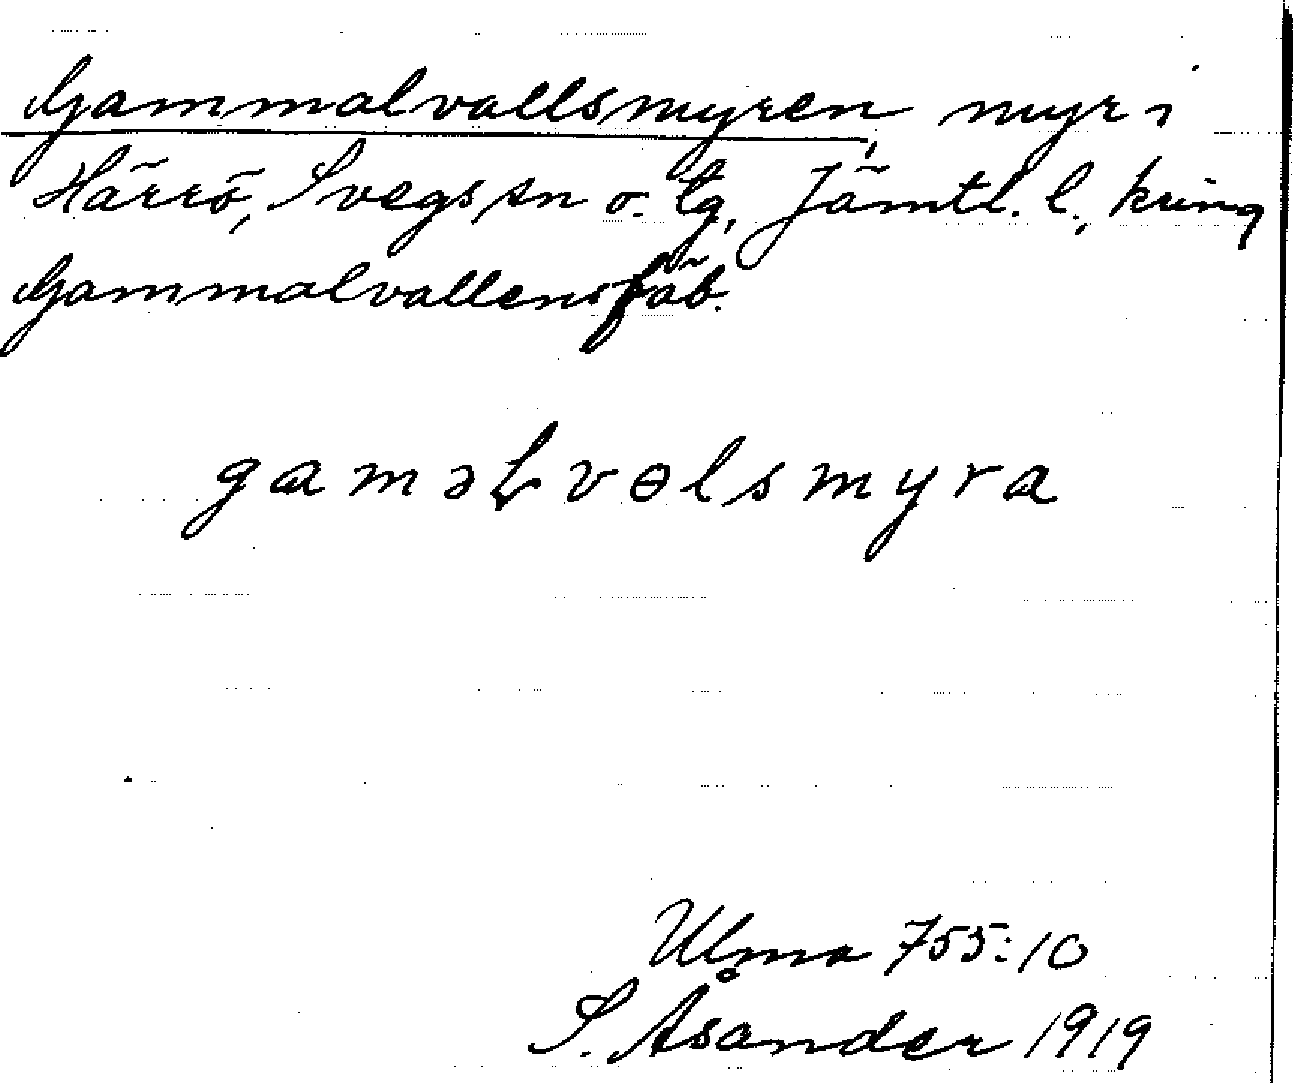 Gammalvallsmyren, myr i
Härrö, Svegs sn o. tg, Jämtl. l., kring
Gammalvallens fäb.
gaməⱢvɵlsmyra
Ulma 755:10
S. Åsander 1919